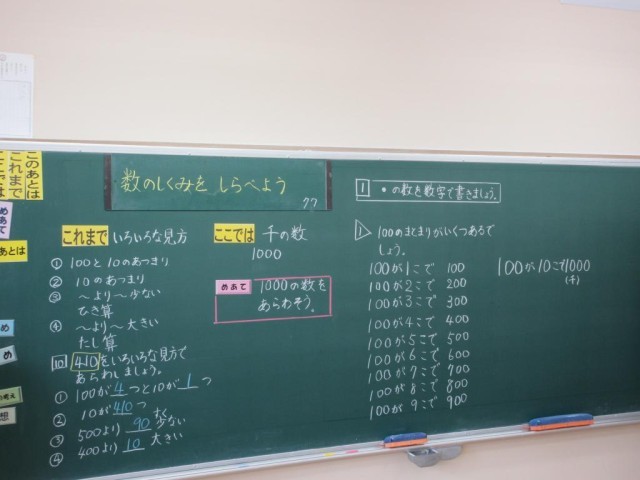 このあとは
これまで
ここでは
めあて
あとは
め
め
数のしくみを しらべよう
77
これまで いろいろな見方
① 100と10のあつまり
② 10のあつまり
③ 〜より〜少ない
ひき算
④ 〜より〜大きい
たし算
10 410をいろいろな見方で
あらわしましょう。
① 100が4つと10が1つ
② 10が410つ
③ 500より 90 少ない
④ 400より 10 大きい
ここでは 千の数
1000
めあて 1000の数を
あらわそう。
1 ・の数を数字で書きましょう。
1 100のまとまりがいくつあるで
しょう。
100が1こで 100
100が2こで 200
100が3こで 300
100が4こで 400
100が5こで 500
100が6こで 600
100が7こで 700
100が8こで 800
100が9こで 900
100が10こで1000
(千)